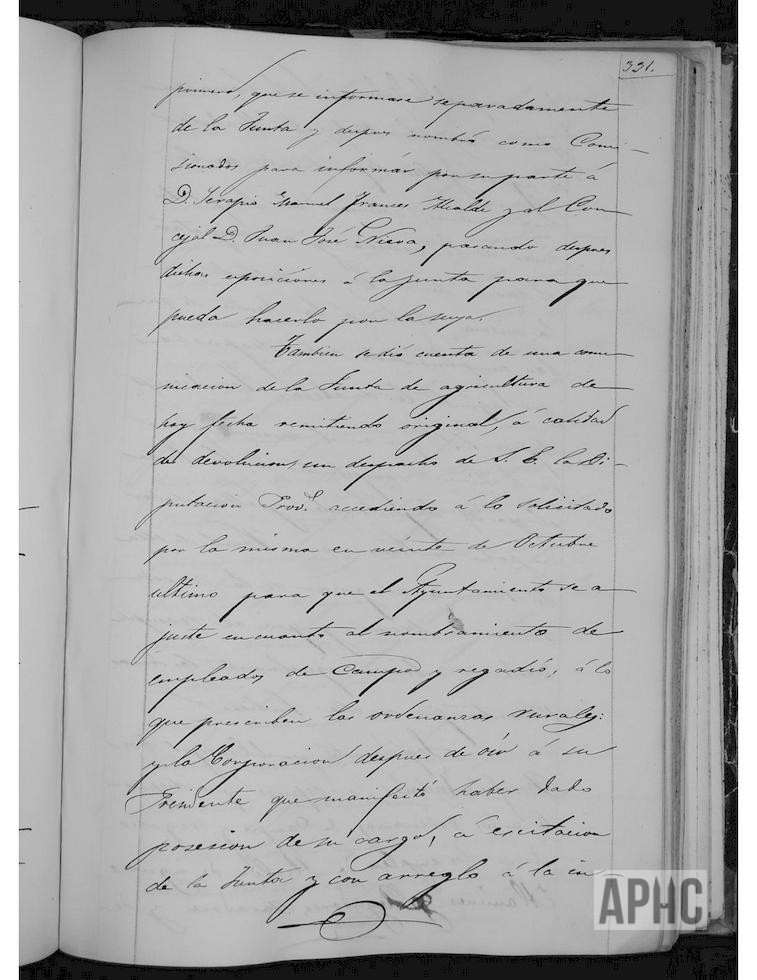 331.
primero, que se informase separadamente
de la Junta y despues nombró como Comi-
sionados para informar por su parte á
D. Serapio Manuel Frances Alcalde y al Con-
cejal D. Juan José Nieva, pasando despues
dichas esposiciones á la junta para que
pueda hacerlo por la suya.
Tambien se dió cuenta de una comu-
nicacion de la Junta de agricultura de
hoy fecha remitiendo original, á calidad
de devolucion, un despacho de S. E. la Di-
putacion Provl. accediendo á lo solicitado
por la misma en veinte de Octubre
ultimo para que el Ayuntamiento se a-
juste en cuanto al nombramiento de
empleados de Campo y regadio, á lo
que prescriben las ordenanzas rurales:
y la Corporacion despues de oir á su
Presidente que manifestó haber dado
posesion de su cargo, á escitacion
de la Junta y con arreglo á la in-
APHC